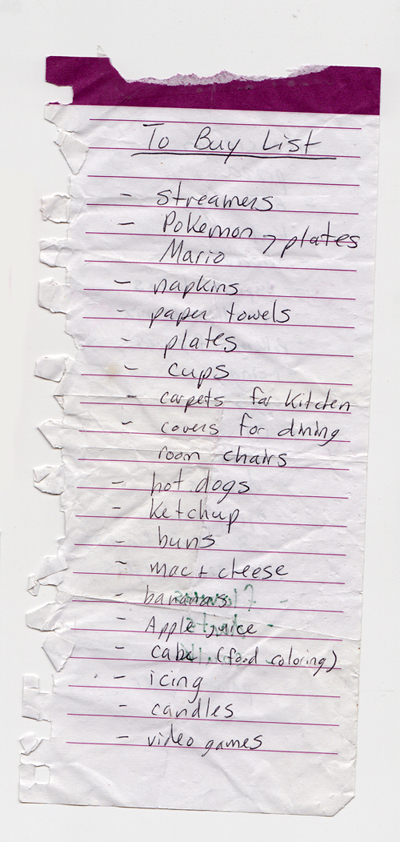 To Buy List
- streamers
- Pokemon > plates
Mario
- napkins
- paper towels
- plates
- cups
- carpets for kitchen
- covers for dining
room chairs
- hot dogs
- ketchup
- buns
- mac + cheese
- bananas
- Apple juice
- cake (food coloring)
- icing
- candles
- video games